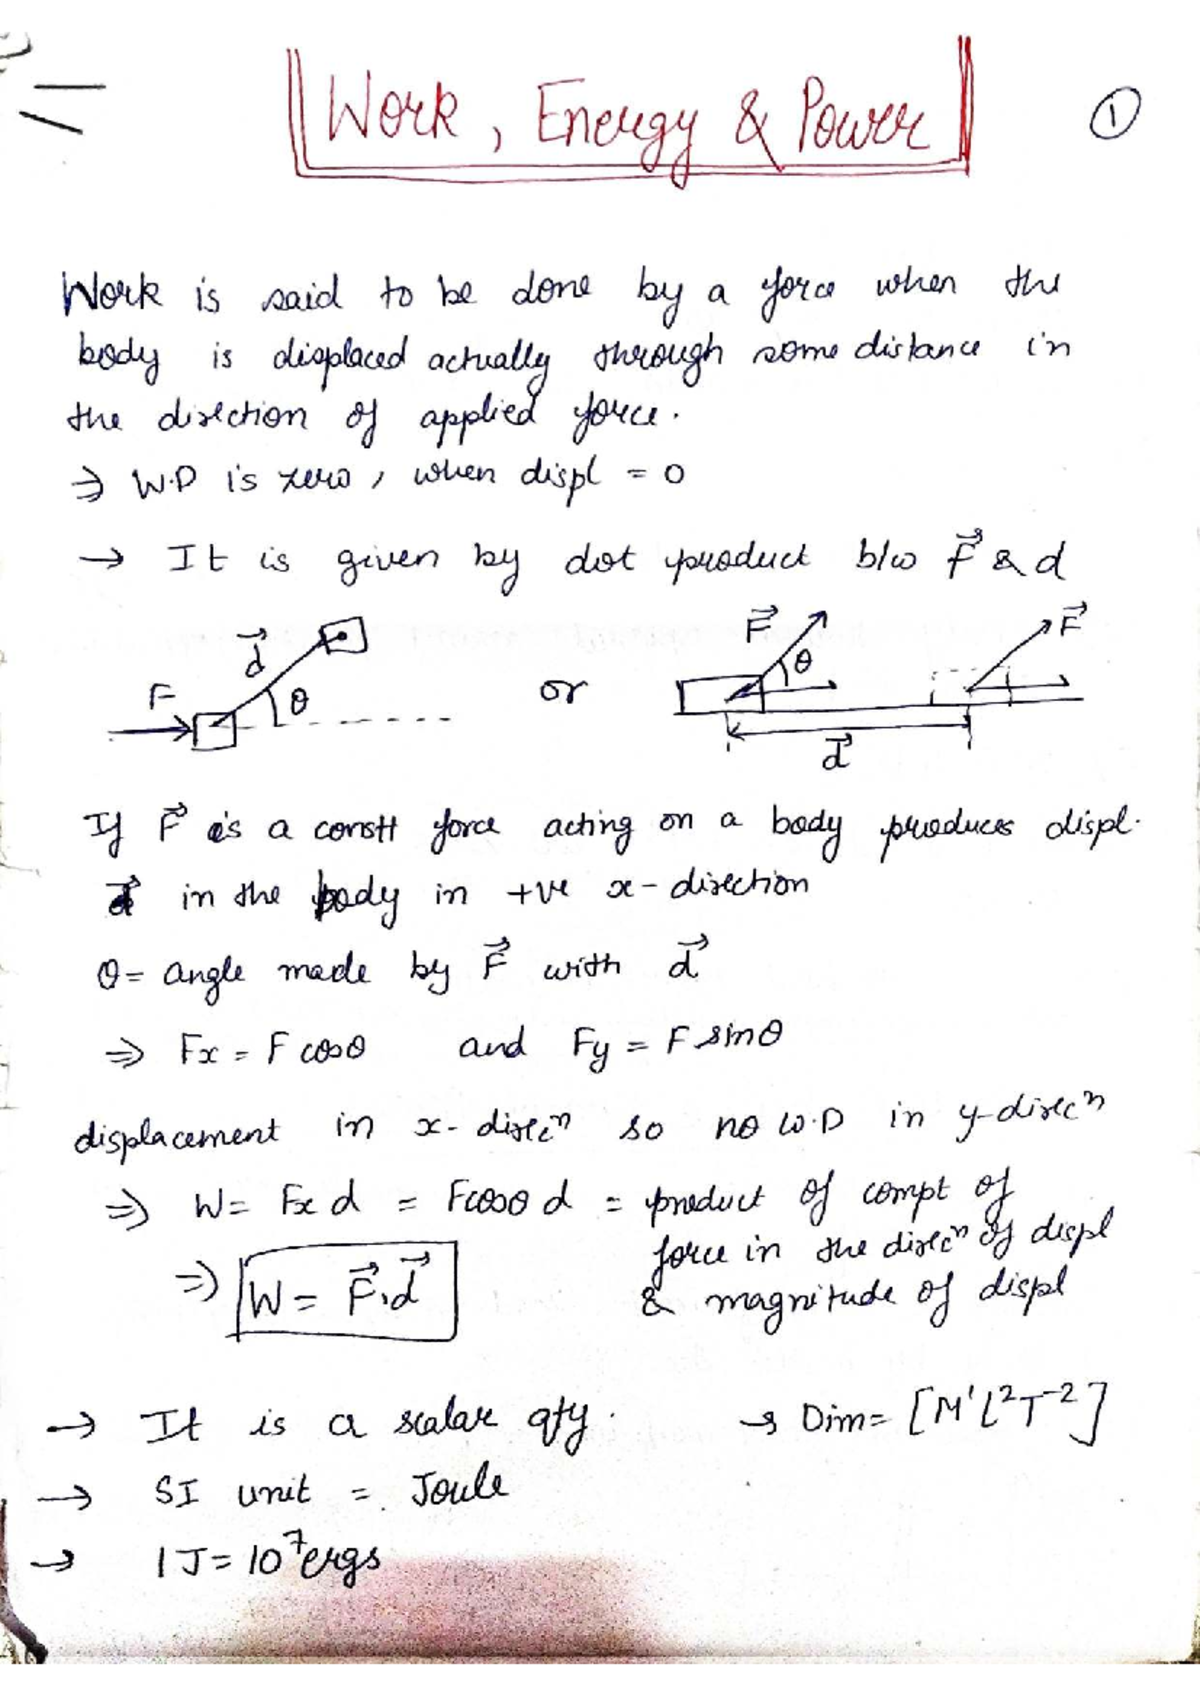 Work, Energy & Power
①
Work is said to be done by a force when the
body is displaced actually through some distance in
the direction of applied force.
⇒ W.D is zero, when displ = 0
→ It is given by dot product b/w F⃗ & d
F d⃗ θ
or
F⃗ θ F⃗
d⃗
If F⃗ is a constt force acting on a body produces displ.
d⃗ in the body in +ve x-direction
θ = angle made by F⃗ with d⃗
⇒ Fx = F cosθ and Fy = F sinθ
displacement in x-direcⁿ so no W.D in y-direcⁿ
⇒ W = Fx d = Fcosθ d = product of compt of
force in the direcⁿ of displ
& magnitude of displ
⇒ W = F⃗.d⃗
→ It is a scalar qty. → Dim = [M¹L²T⁻²]
→ SI unit = Joule
→ 1J = 10⁷ergs